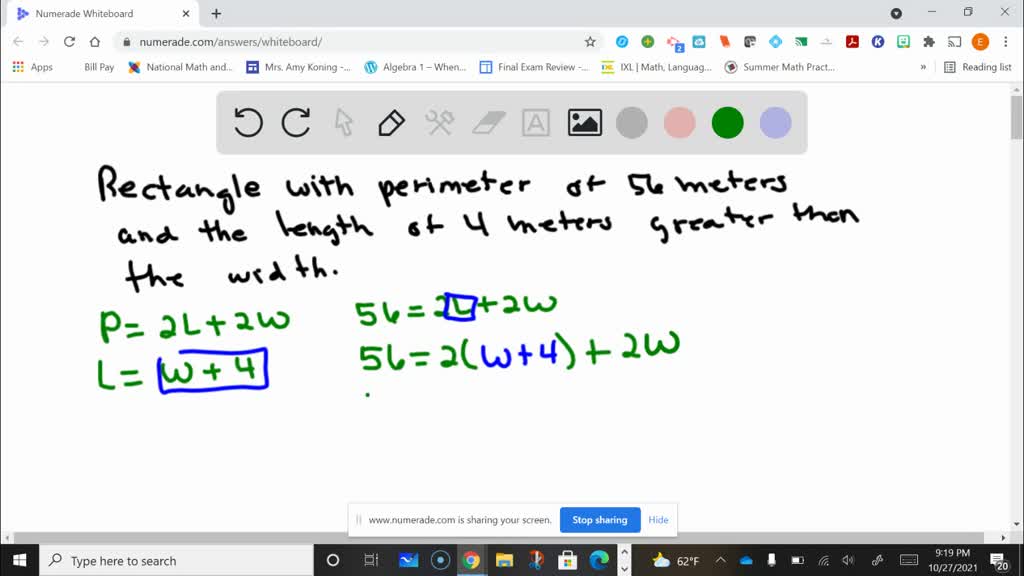 Numerade Whiteboard
numerade.com/answers/whiteboard/
2
E
Apps
Bill Pay
National Math and...
Mrs. Amy Koning -...
Algebra 1 – When...
Final Exam Review -...
IXL | Math, Languag...
Summer Math Pract...
»
Reading list
A
Rectangle with perimeter of 56 meters
and the length of 4 meters greater than
the width.
P = 2L + 2W
56 = 2L + 2W
L = W + 4
56 = 2(W + 4) + 2W
www.numerade.com is sharing your screen.
Stop sharing
Hide
Type here to search
62°F
9:19 PM
10/27/2021
20